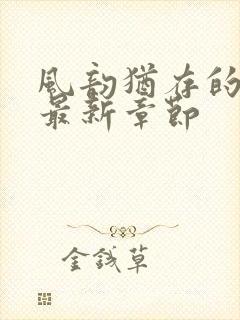 風韵猶存的
最新章節
金錢草